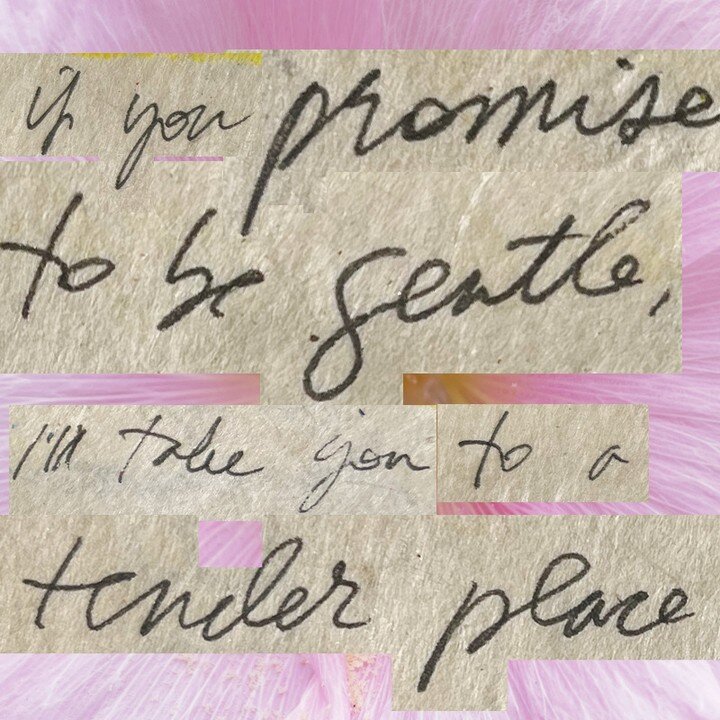 if you promise
to be gentle,
I'll take you to a
tender place